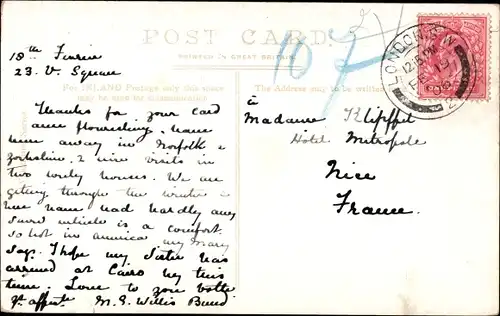 POST CARD.
PRINTED IN GREAT BRITAIN.
18th
23. V. Square
For INLAND Postage only this space
may be used for communication
The Address may be written
Thanks for your card
am flourishing, have
been away in Norfolk &
Yorkshire. 2 nice visits in
two lovely houses. We are
getting through the winter &
have had hardly any
which is a comfort.
so not in America my Mary
says. I hope my sister has
arrived at Cairo by this
time. Love to you both
yr affect. M. G. Willis Bund
à
Madame Klipffel
Hotel Métropole
Nice
France.
LONDON. N.W
12.15 PM
2